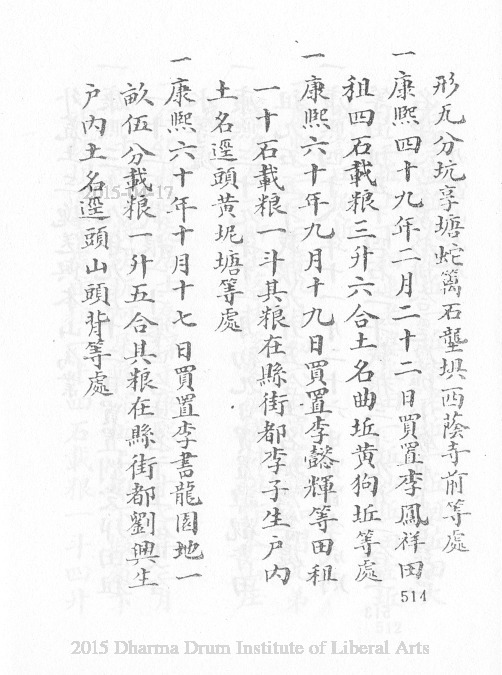 形九分坑享塘蛇篱石壟垻西蔭寺前等處
一康熙四十九年二月二十二日買置李鳳祥田
租四石載粮三升六合土名曲坵黄狗坵等處
一康熙六十年九月十九日買置李懿輝等田租
一十石載粮一斗其粮在縣街都李子生户内
土名逕頭黄坭塘等處
一康熙六十年十月十七日買置李書龍園地一
畝伍分載粮一升五合其粮在縣街都劉興生
户内土名逕頭山頭背等處
514
2015 Dharma Drum Institute of Liberal Arts